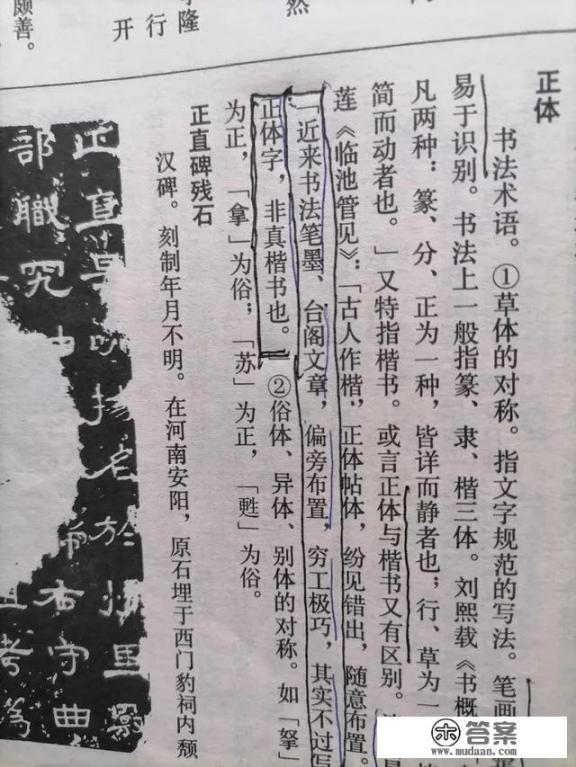 然
隆
行
开
颇善。
正体
书法术语。①草体的对称。指文字规范的写法。笔画
易于识别。书法上一般指篆、隶、楷三体。刘熙载《书概
凡两种：篆、分、正为一种，皆详而静者也；行、草为一
简而动者也。」又特指楷书。或言正体与楷书又有区别。
莲《临池管见》：「古人作楷，正体帖体，纷见错出，随意布置。
「近来书法笔墨、台阁文章，偏旁布置，穷工极巧，其实不过写
正体字，非真楷书也。」②俗体、异体、别体的对称。如「拏」
为正，「拿」为俗；「苏」为正，「甦」为俗。
正直碑残石
汉碑。刻制年月不明。在河南安阳，原石埋于西门豹祠内颓
正直名於
部職究右守曲
答案
www.mudaan.com